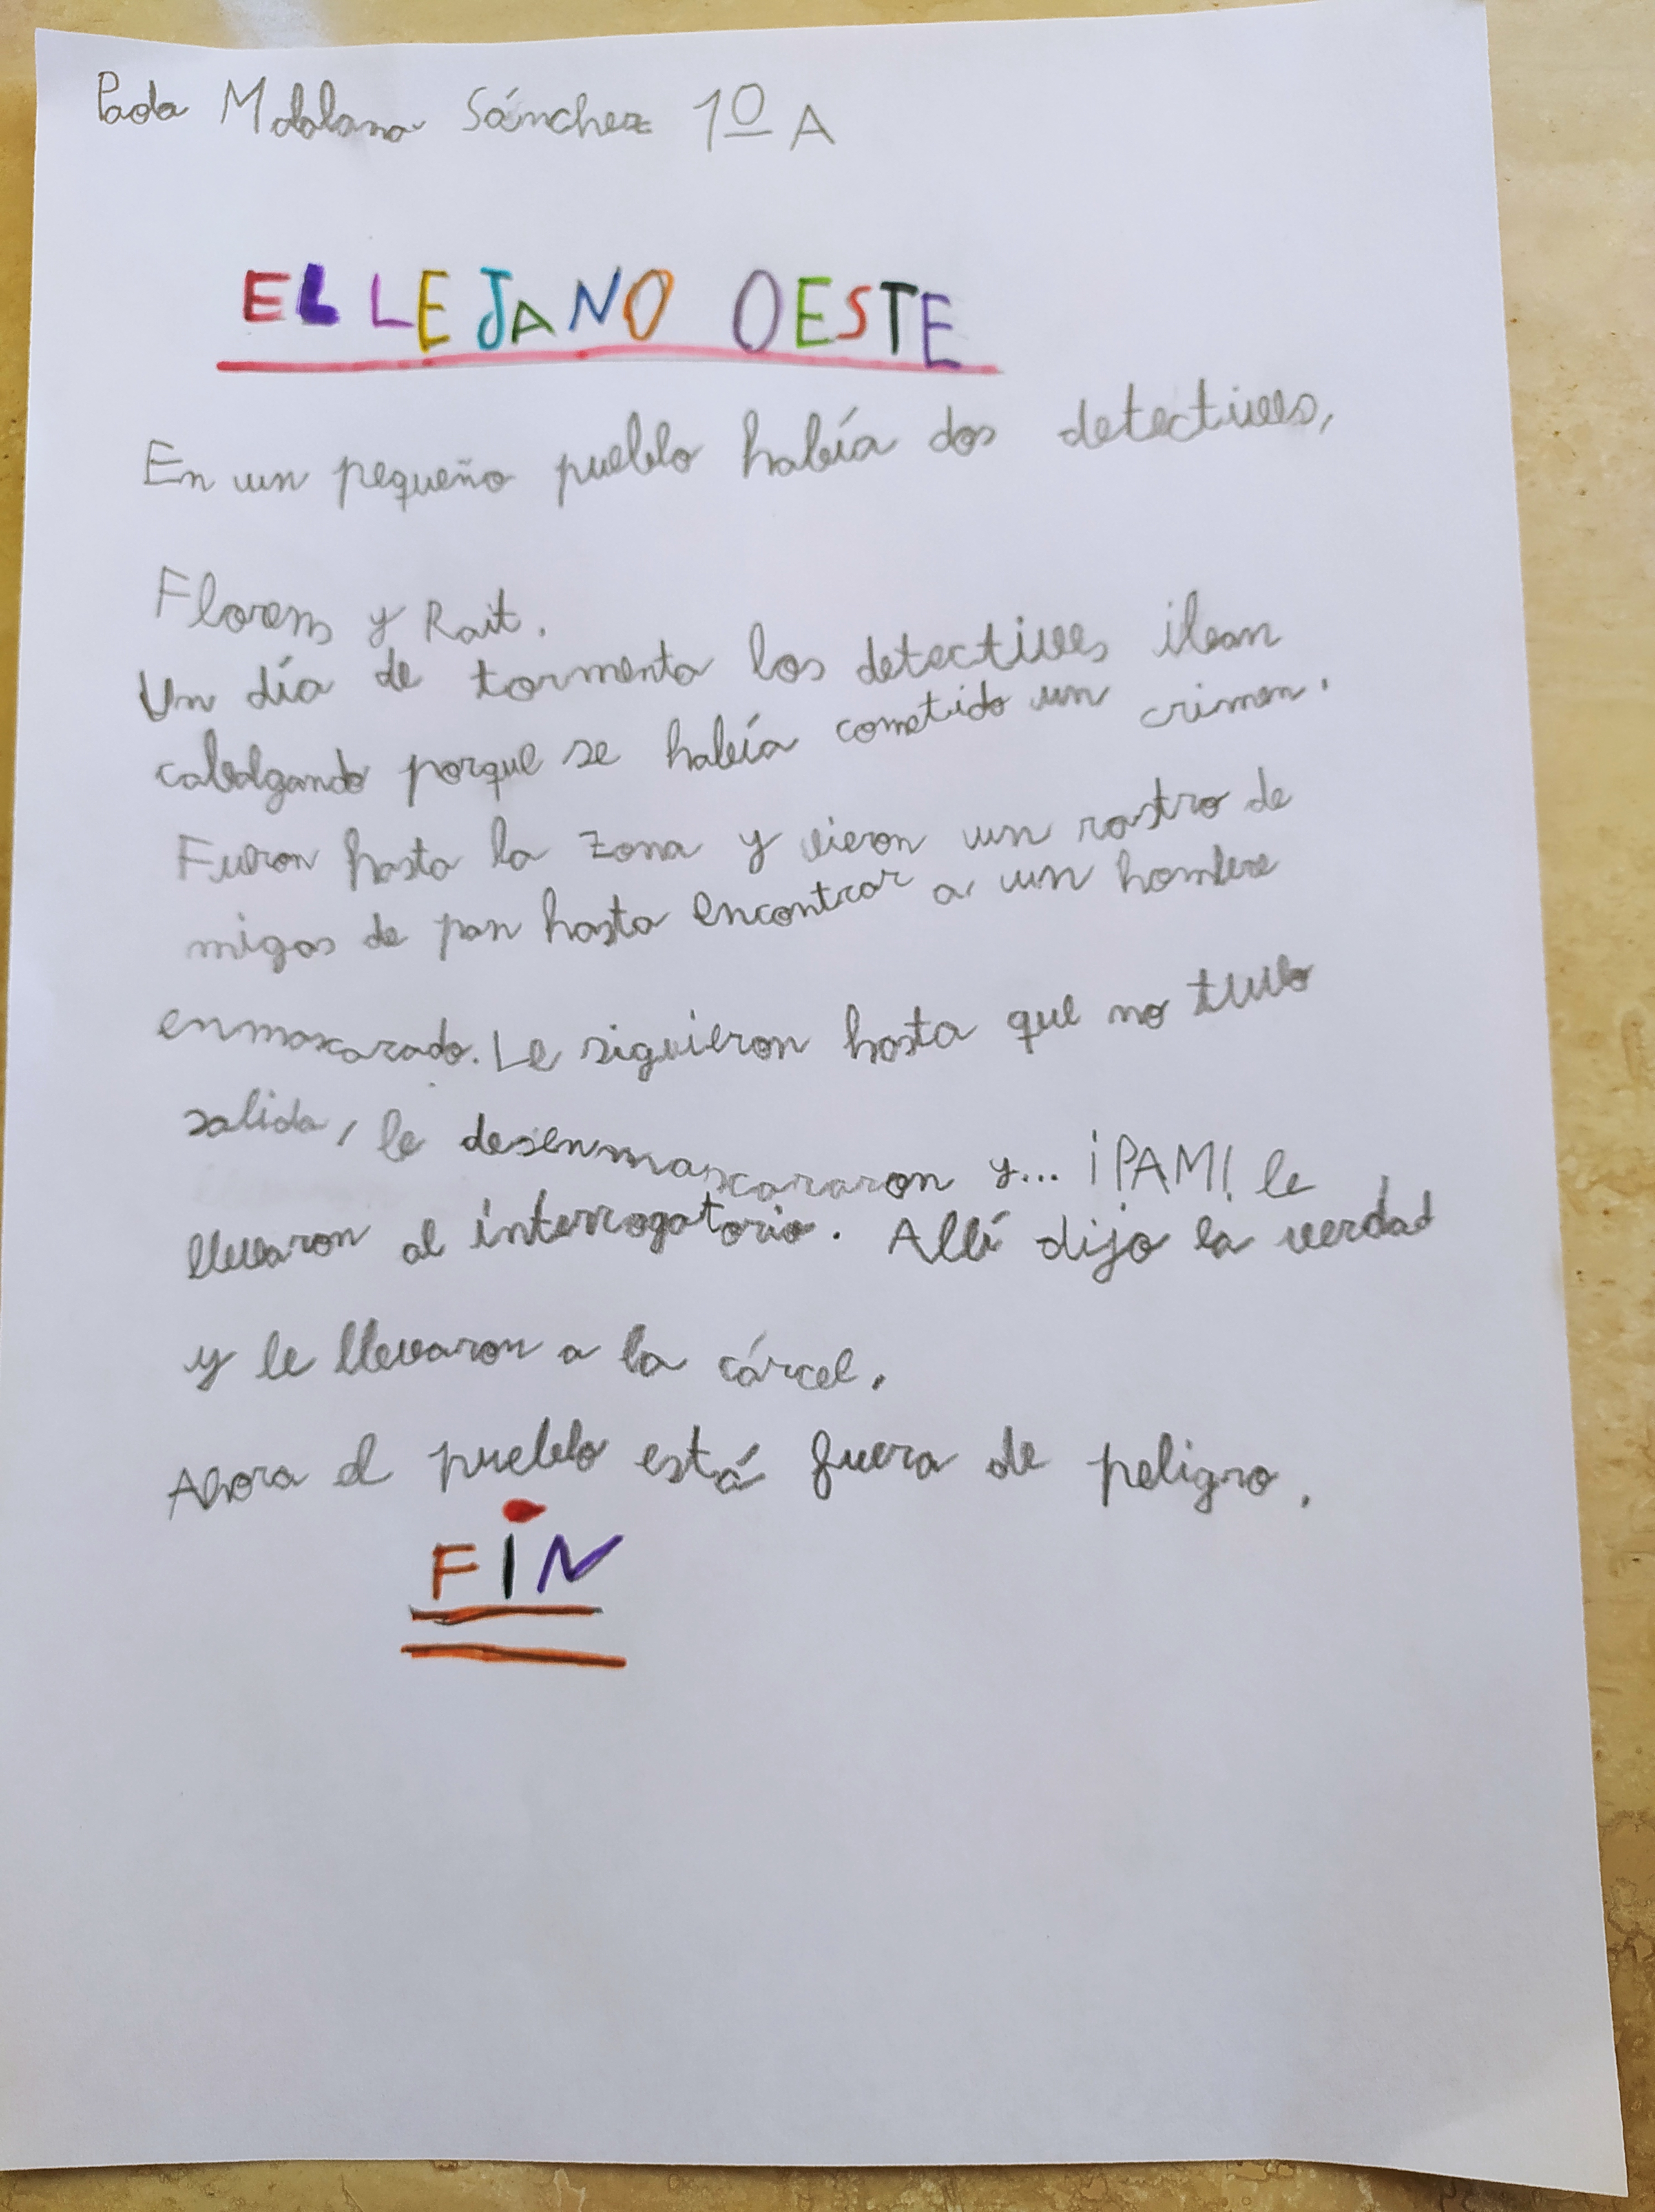 Sánchez 1º A
EL LEJANO OESTE
En un pequeño pueblo había dos detectives,
Florens y Rait.
Un día de tormenta los detectives iban
cabalgando porque se había cometido un crimen.
Fueron hasta la zona y vieron un rastro de
migas de pan hasta encontrar a un hombre
enmascarado. Le siguieron hasta que no tuvo
salida, le desenmascararon y... ¡PAM! le
llevaron al interrogatorio. Allí dijo la verdad
y le llevaron a la cárcel.
Ahora el pueblo está fuera de peligro.
FIN